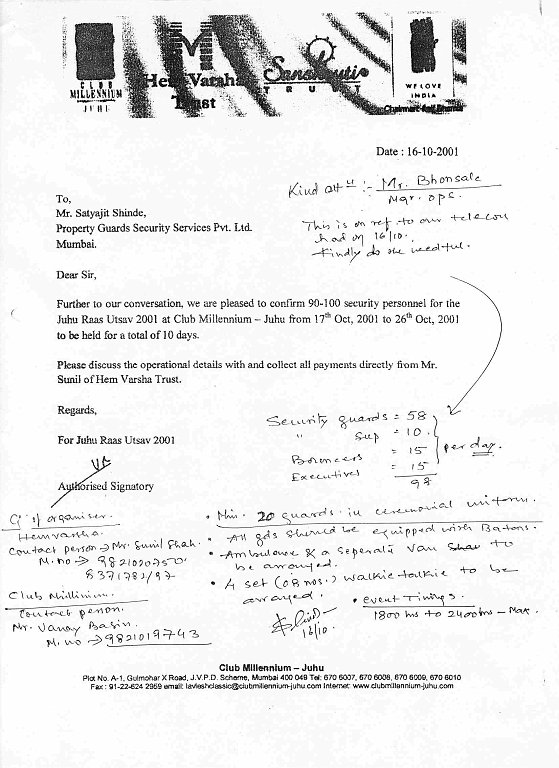 CLUB
MILLENNIUM
JUHU
Hem Varsha
Trust
Sanskruti
TRUST
WE LOVE
INDIA
Date : 16-10-2001
Kind attn :- Mr. Bhonsale
Mgr. ops.
This is on ref. to our telecon
had on 16/10.
Kindly do the needful.
To,
Mr. Satyajit Shinde,
Property Guards Security Services Pvt. Ltd.
Mumbai.
Dear Sir,
Further to our conversation, we are pleased to confirm 90-100 security personnel for the
Juhu Raas Utsav 2001 at Club Millennium – Juhu from 17th Oct, 2001 to 26th Oct, 2001
to be held for a total of 10 days.
Please discuss the operational details with and collect all payments directly from Mr.
Sunil of Hem Varsha Trust.
Regards,
For Juhu Raas Utsav 2001
Authorised Signatory
Security guards = 58
" Sup = 10.
Bouncers = 15
Executives = 15
98
per day.
organiser.
Hemvarsha.
Contact person → Mr. Sunil Shah.
M. no → 9821020750
8371782/97
Club Millinium.
Contact person.
Mr. Vanay Basin.
M. no → 9821019743
• Min. 20 guards in ceremonial uniform.
• All gds should be equipped with Batons.
• Ambulance & a seperate van to
be arranged.
• 4 set (08 nos.) walkie-talkie to be
arranged.
16/10.
• Event Timings.
1800 hrs to 2400 hrs – Max.
Club Millennium – Juhu
Plot No. A-1, Gulmohar X Road, J.V.P.D. Scheme, Mumbai 400 049 Tel: 670 6007, 670 6008, 670 6009, 670 6010
Fax : 91-22-624 2959 email: lavleshclassic@clubmillennium-juhu.com Internet: www.clubmillennium-juhu.com